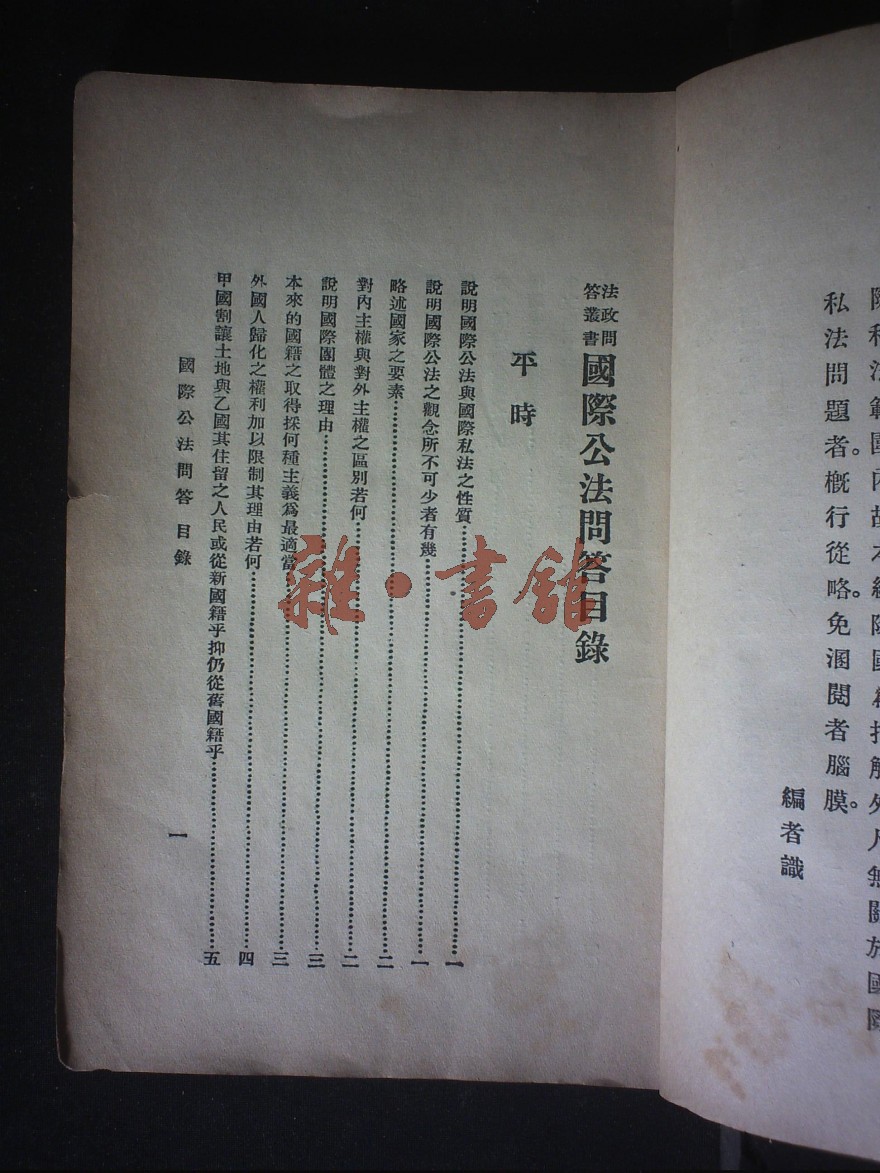 私法問題者。概行從略免溷閱者腦膜。
編者識
法政問答叢書 國際公法問答目錄
平時
說明國際公法與國際私法之性質……一
說明國際公法之觀念所不可少者有幾……一
略述國家之要素……二
對內主權與對外主權之區別若何……二
說明國際團體之理由……三
本來的國籍之取得採何種主義爲最適當……三
外國人歸化之權利加以限制其理由若何……四
甲國割讓土地與乙國其住留之人民或從新國籍乎抑仍從舊國籍乎……五
國際公法問答 目錄
一
雜·書館